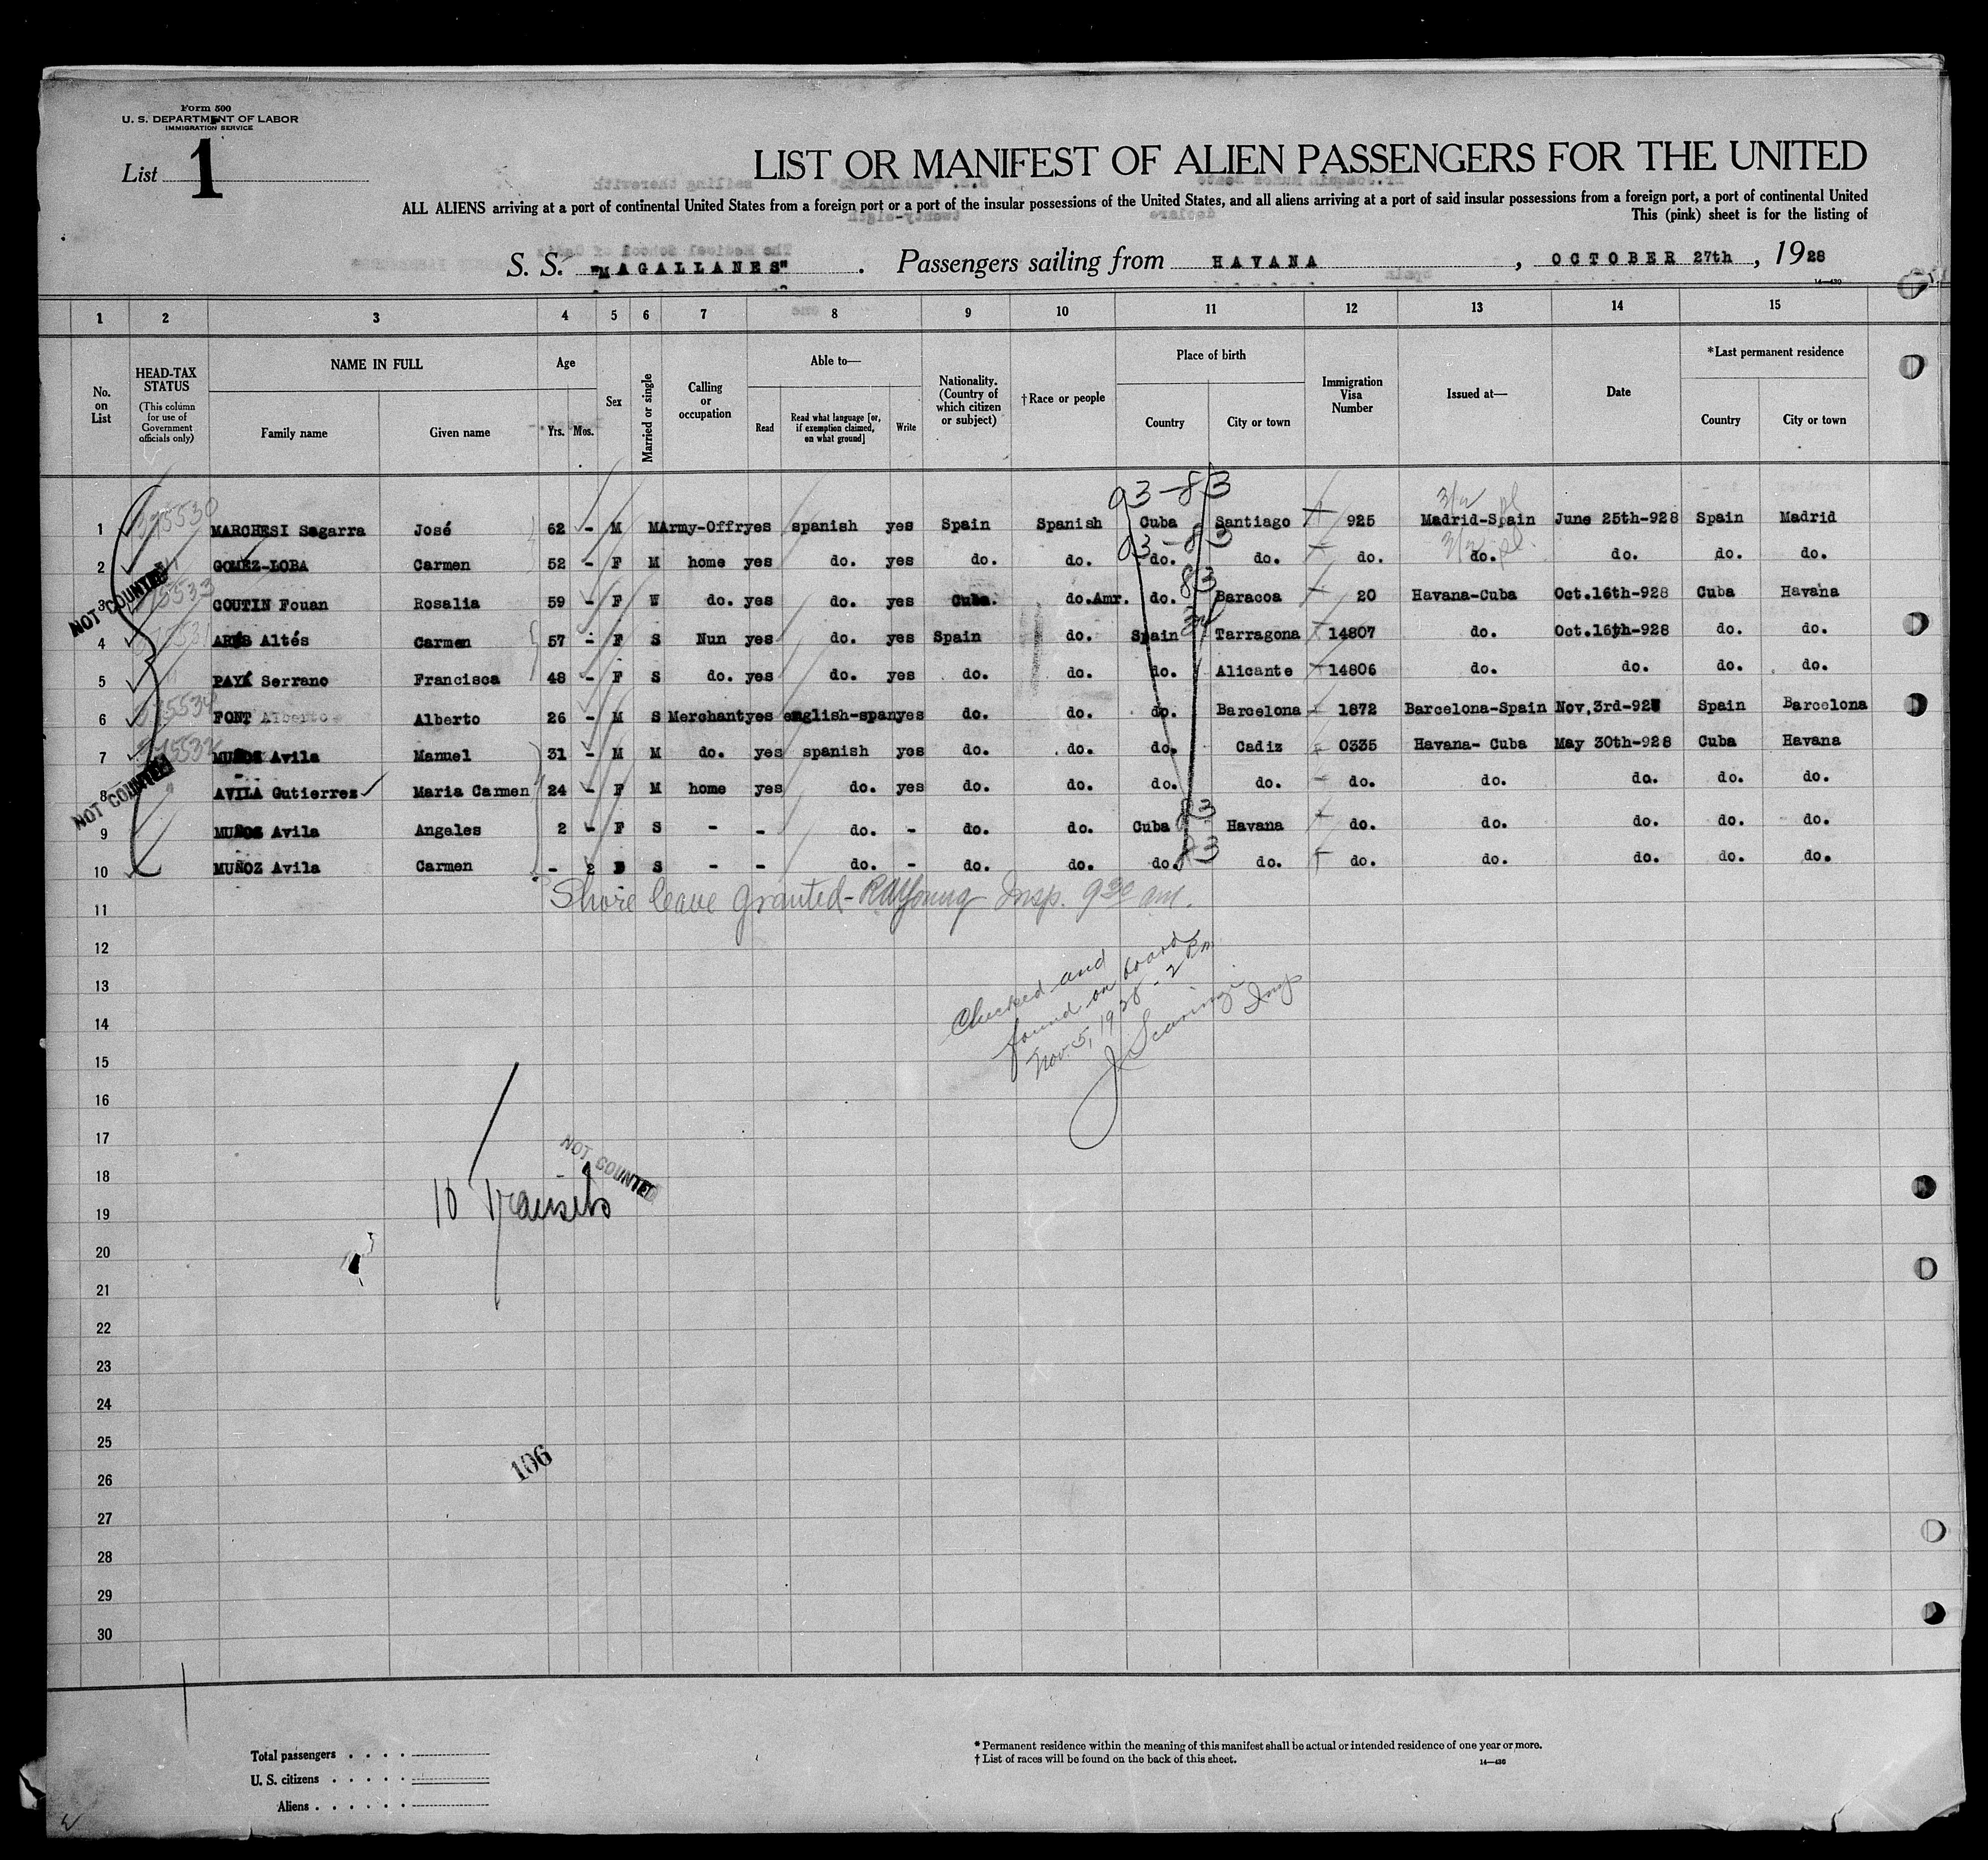 Form 500
U. S. DEPARTMENT OF LABOR
IMMIGRATION SERVICE
List 1
LIST OR MANIFEST OF ALIEN PASSENGERS FOR THE UNITED
ALL ALIENS arriving at a port of continental United States from a foreign port or a port of the insular possessions of the United States, and all aliens arriving at a port of said insular possessions from a foreign port, a port of continental United
This (pink) sheet is for the listing of
S. S. "MAGALLANES". Passengers sailing from HAVANA, OCTOBER 27th, 1928
14—430
1 2 3 4 5 6 7 8 9 10 11 12 13 14 15
No. on List
HEAD-TAX STATUS (This column for use of Government officials only)
NAME IN FULL Family name Given name
Age Yrs. Mos.
Sex
Married or single
Calling or occupation
Able to— Read Read what language [or, if exemption claimed, on what ground] Write
Nationality. (Country of which citizen or subject)
†Race or people
Place of birth Country City or town
Immigration Visa Number
Issued at—
Date
*Last permanent residence Country City or town
93-83
1 375530 MARCHESI Sagarra José 62 - M M Army-Offr yes spanish yes Spain Spanish Cuba Santiago 925 Madrid-Spain June 25th-928 Spain Madrid
93-83
2 GOMEZ-LOBA Carmen 52 - F M home yes do. yes do. do. do. do. do. do. do. do. do.
83
3 COUTIN Fouan Rosalia 59 - F W do. yes do. yes Cuba. do.Amr. do. Baracoa 20 Havana-Cuba Oct.16th-928 Cuba Havana
4 Altés Carmen 57 - F S Nun yes do. yes Spain do. Spain Tarragona 14807 do. Oct.16th-928 do. do.
5 PAYÁ Serrano Francisca 48 - F S do. yes do. yes do. do. do. Alicante 14806 do. do. do. do.
6 375534 FONT Alberto Alberto 26 - M S Merchant yes english-span yes do. do. do. Barcelona 1872 Barcelona-Spain Nov,3rd-92 Spain Barcelona
7 MUÑOZ Avila Manuel 31 - M M do. yes spanish yes do. do. do. Cadiz 0335 Havana- Cuba May 30th-928 Cuba Havana
8 AVILA Gutierrez Maria Carmen 24 - F M home yes do. yes do. do. do. do. do. do. do. do. do.
83
9 MUÑOZ Avila Angeles 2 - F S - - do. - do. do. Cuba Havana do. do. do. do. do.
83
10 MUÑOZ Avila Carmen - 2 S - - do. - do. do. do. do. do. do. do. do. do.
NOT COUNTED
NOT COUNTED
Shore leave granted - RW Young Insp. 9 30 am.
11
12
13
14
15
16
17
18
19
20
21
22
23
24
25
26
27
28
29
30
Checked and
found on board
Nov. 5, 1928 - 2 Pm
Insp
NOT COUNTED
10 Transits
106
Total passengers . . . .
U. S. citizens . . . . .
Aliens . . . . . .
*Permanent residence within the meaning of this manifest shall be actual or intended residence of one year or more.
†List of races will be found on the back of this sheet.
14—430